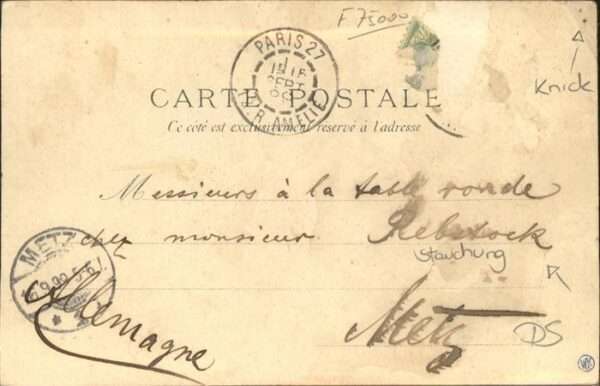 F 75000
PARIS 27
SEPT
R. AMELIE
Knick
CARTE POSTALE
Ce côté est exclusivement réservé à l'adresse
Messieurs à la table ronde
chez monsieur Rebstock
Stauchung
METZ
Allemagne
Metz
DS